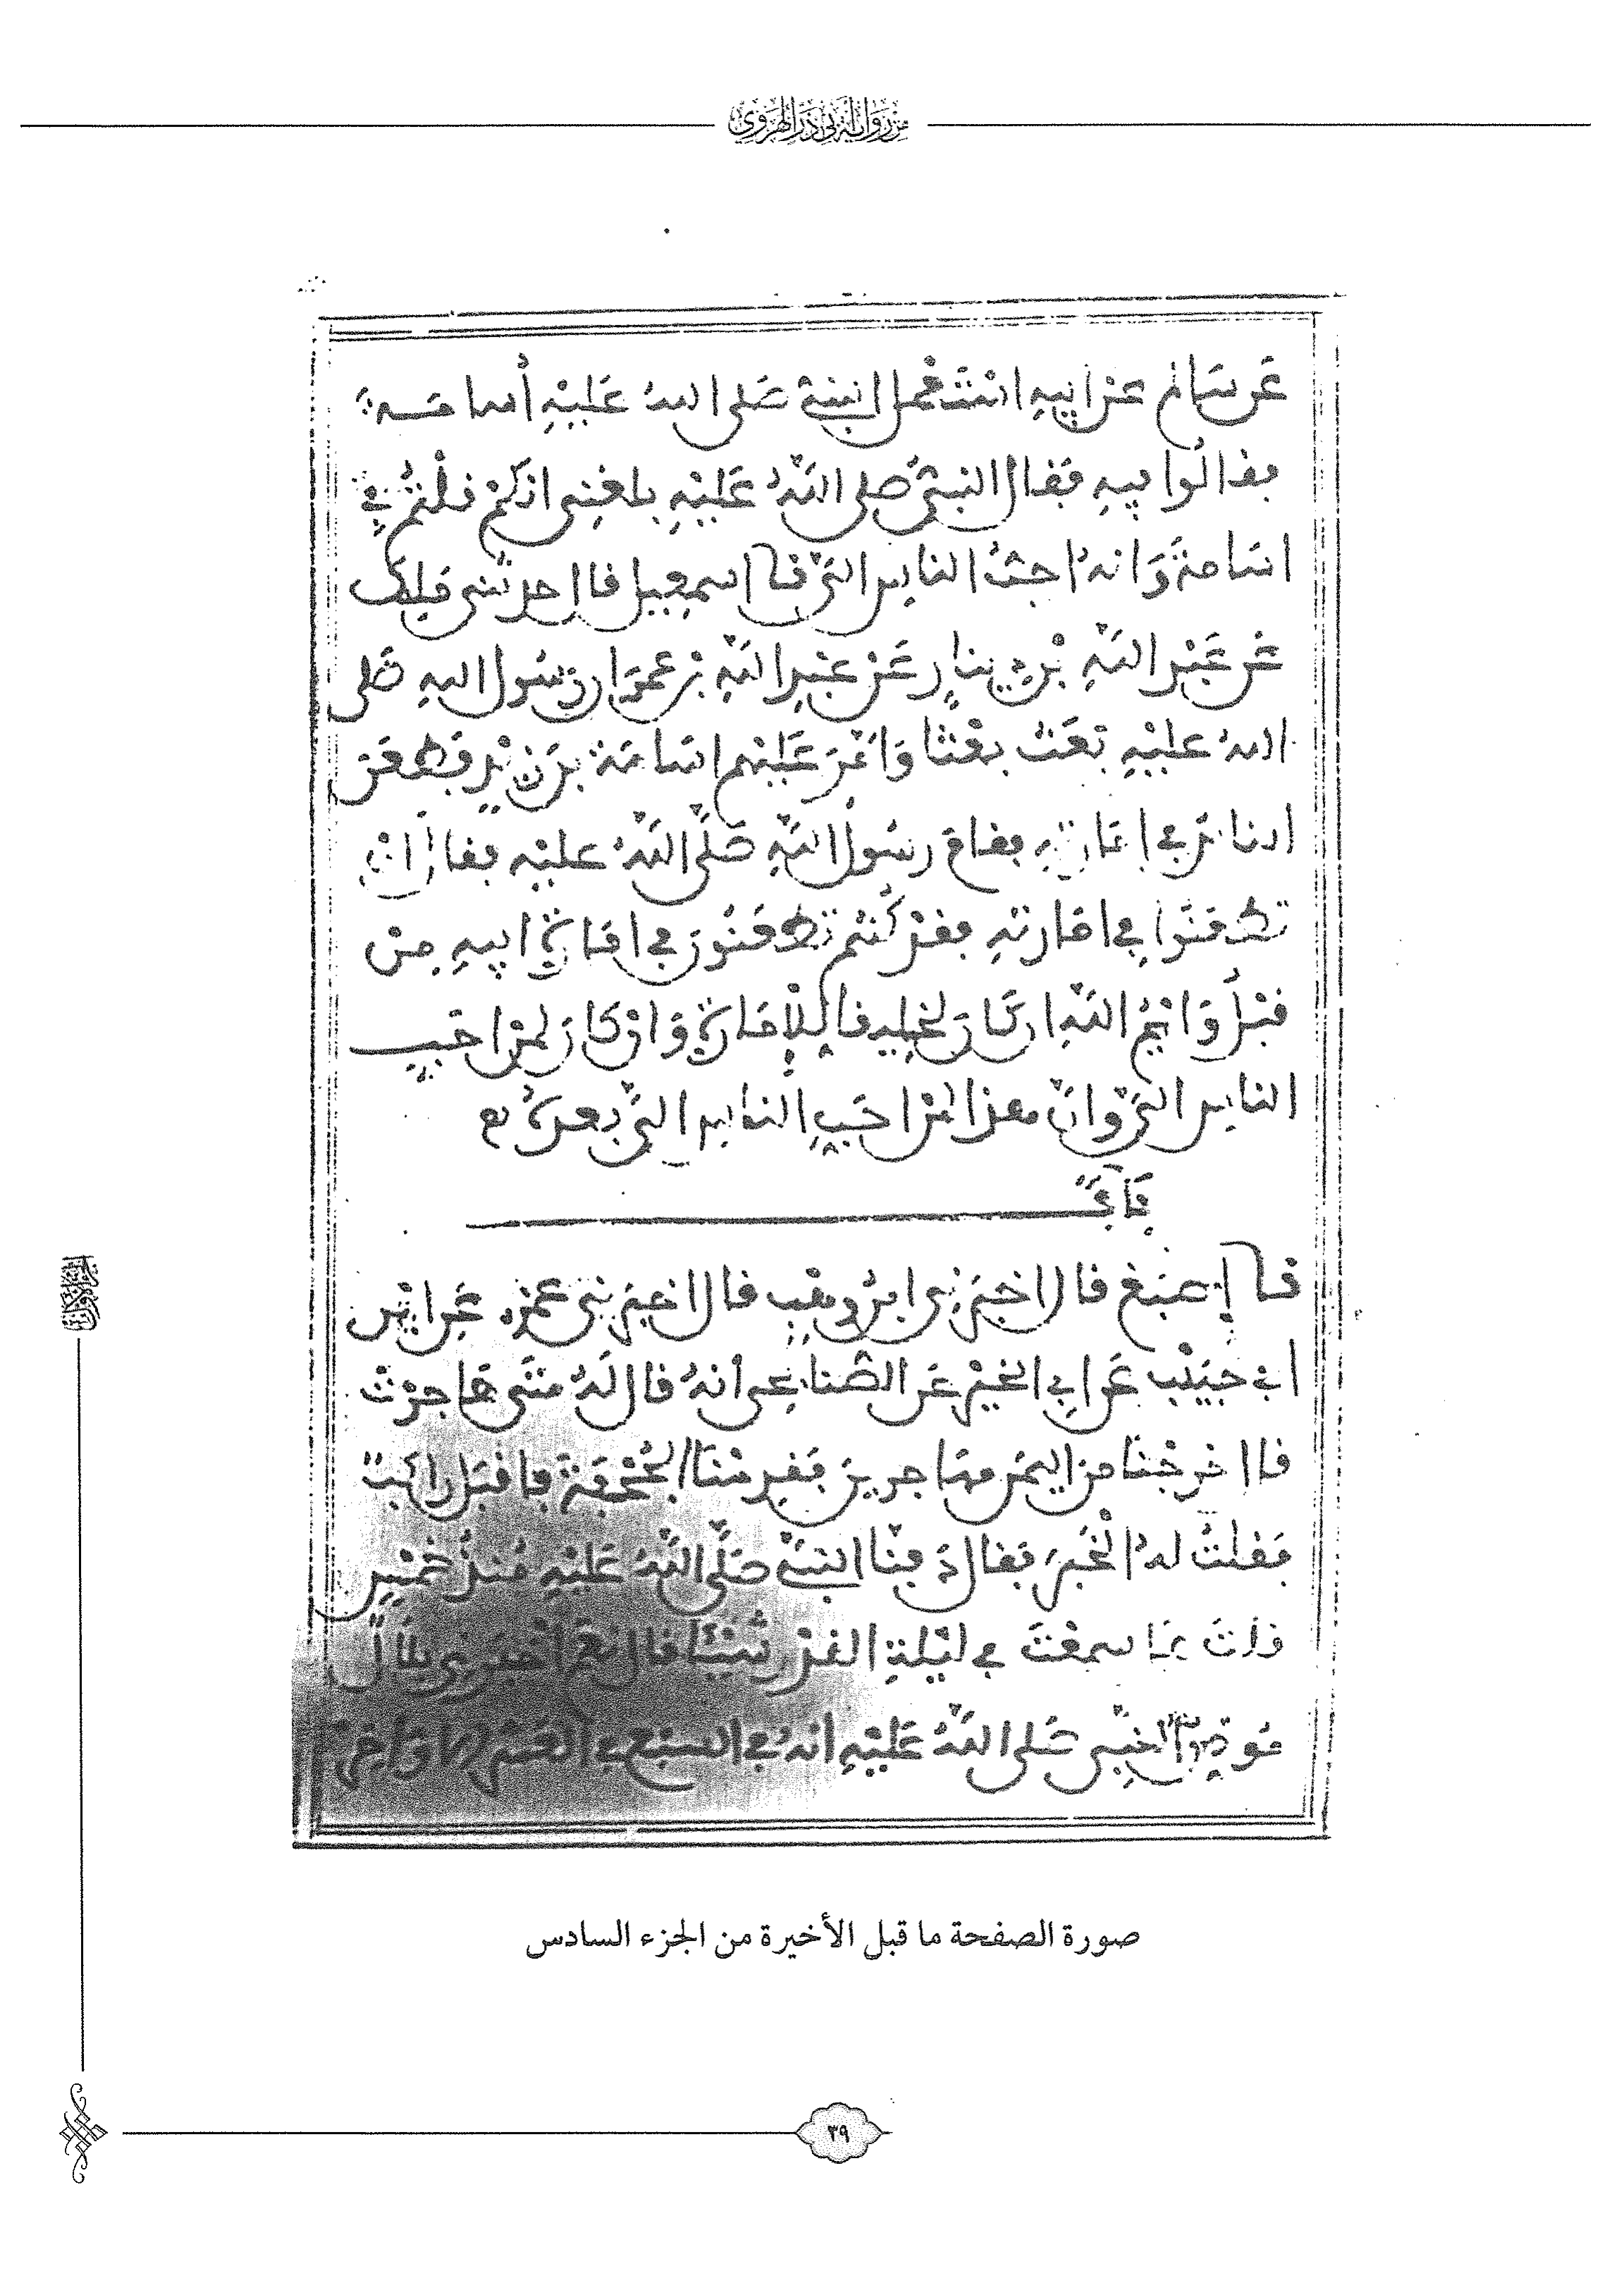 من رواية أبي ذر الهروي
عن سالم عن ابيه استعمل النبي صلى الله عليه أسامة
فقالوا فيه فقال النبي صلى الله عليه بلغني انكم قلتم في
اسامة وانه احب الناس الي نا اسمعيل قال حدثني ملك
عن عبد الله بن دينار عن عبد الله بن عمر ان رسول الله صلى
الله عليه بعث بعثا وأمر عليهم اسامة بن زيد فطعن
الناس في امارته فقام رسول الله صلى الله عليه فقال ان
تطعنوا في امارته فقد كنتم تطعنون في امارة ابيه من
قبل وايم الله ان كان لخليقا للإمارة وان كان لمن احب
الناس الي وان هذا لمن احب الناس الي بعده
باب
نا إصبغ قال اخبرني ابن وهب قال اخبرني عمرو عن ابن
أبي حبيب عن ابي الخير عن الصنابحي أنه قال له متى هاجرت
قال خرجنا من اليمن مهاجرين فقدمنا الجحفة فاقبل راكب
فقلت له الخبر فقال دفنا النبي صلى الله عليه منذ خمس
قلت هل سمعت في ليلة القدر شيئا قال نعم أخبرني بلال
موذن النبي صلى الله عليه أنه في السبع في العشر الاواخر
صورة الصفحة ما قبل الأخيرة من الجزء السادس
٣٩